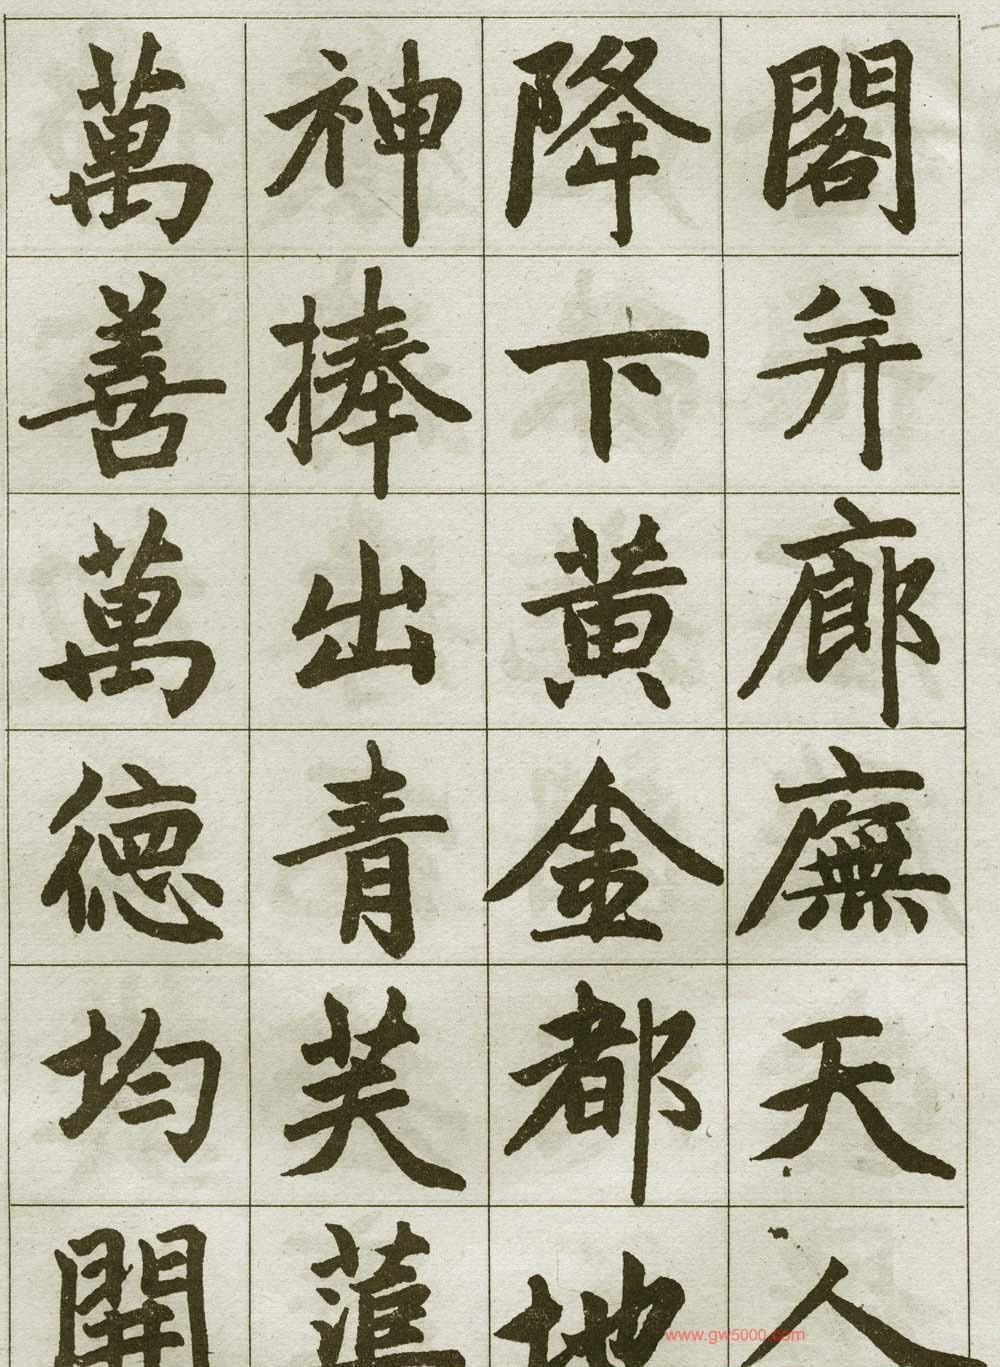 閣并廊廡天人
降下黄金都地
神捧出青芙蓮
萬善萬德均開
www.gw5000.com